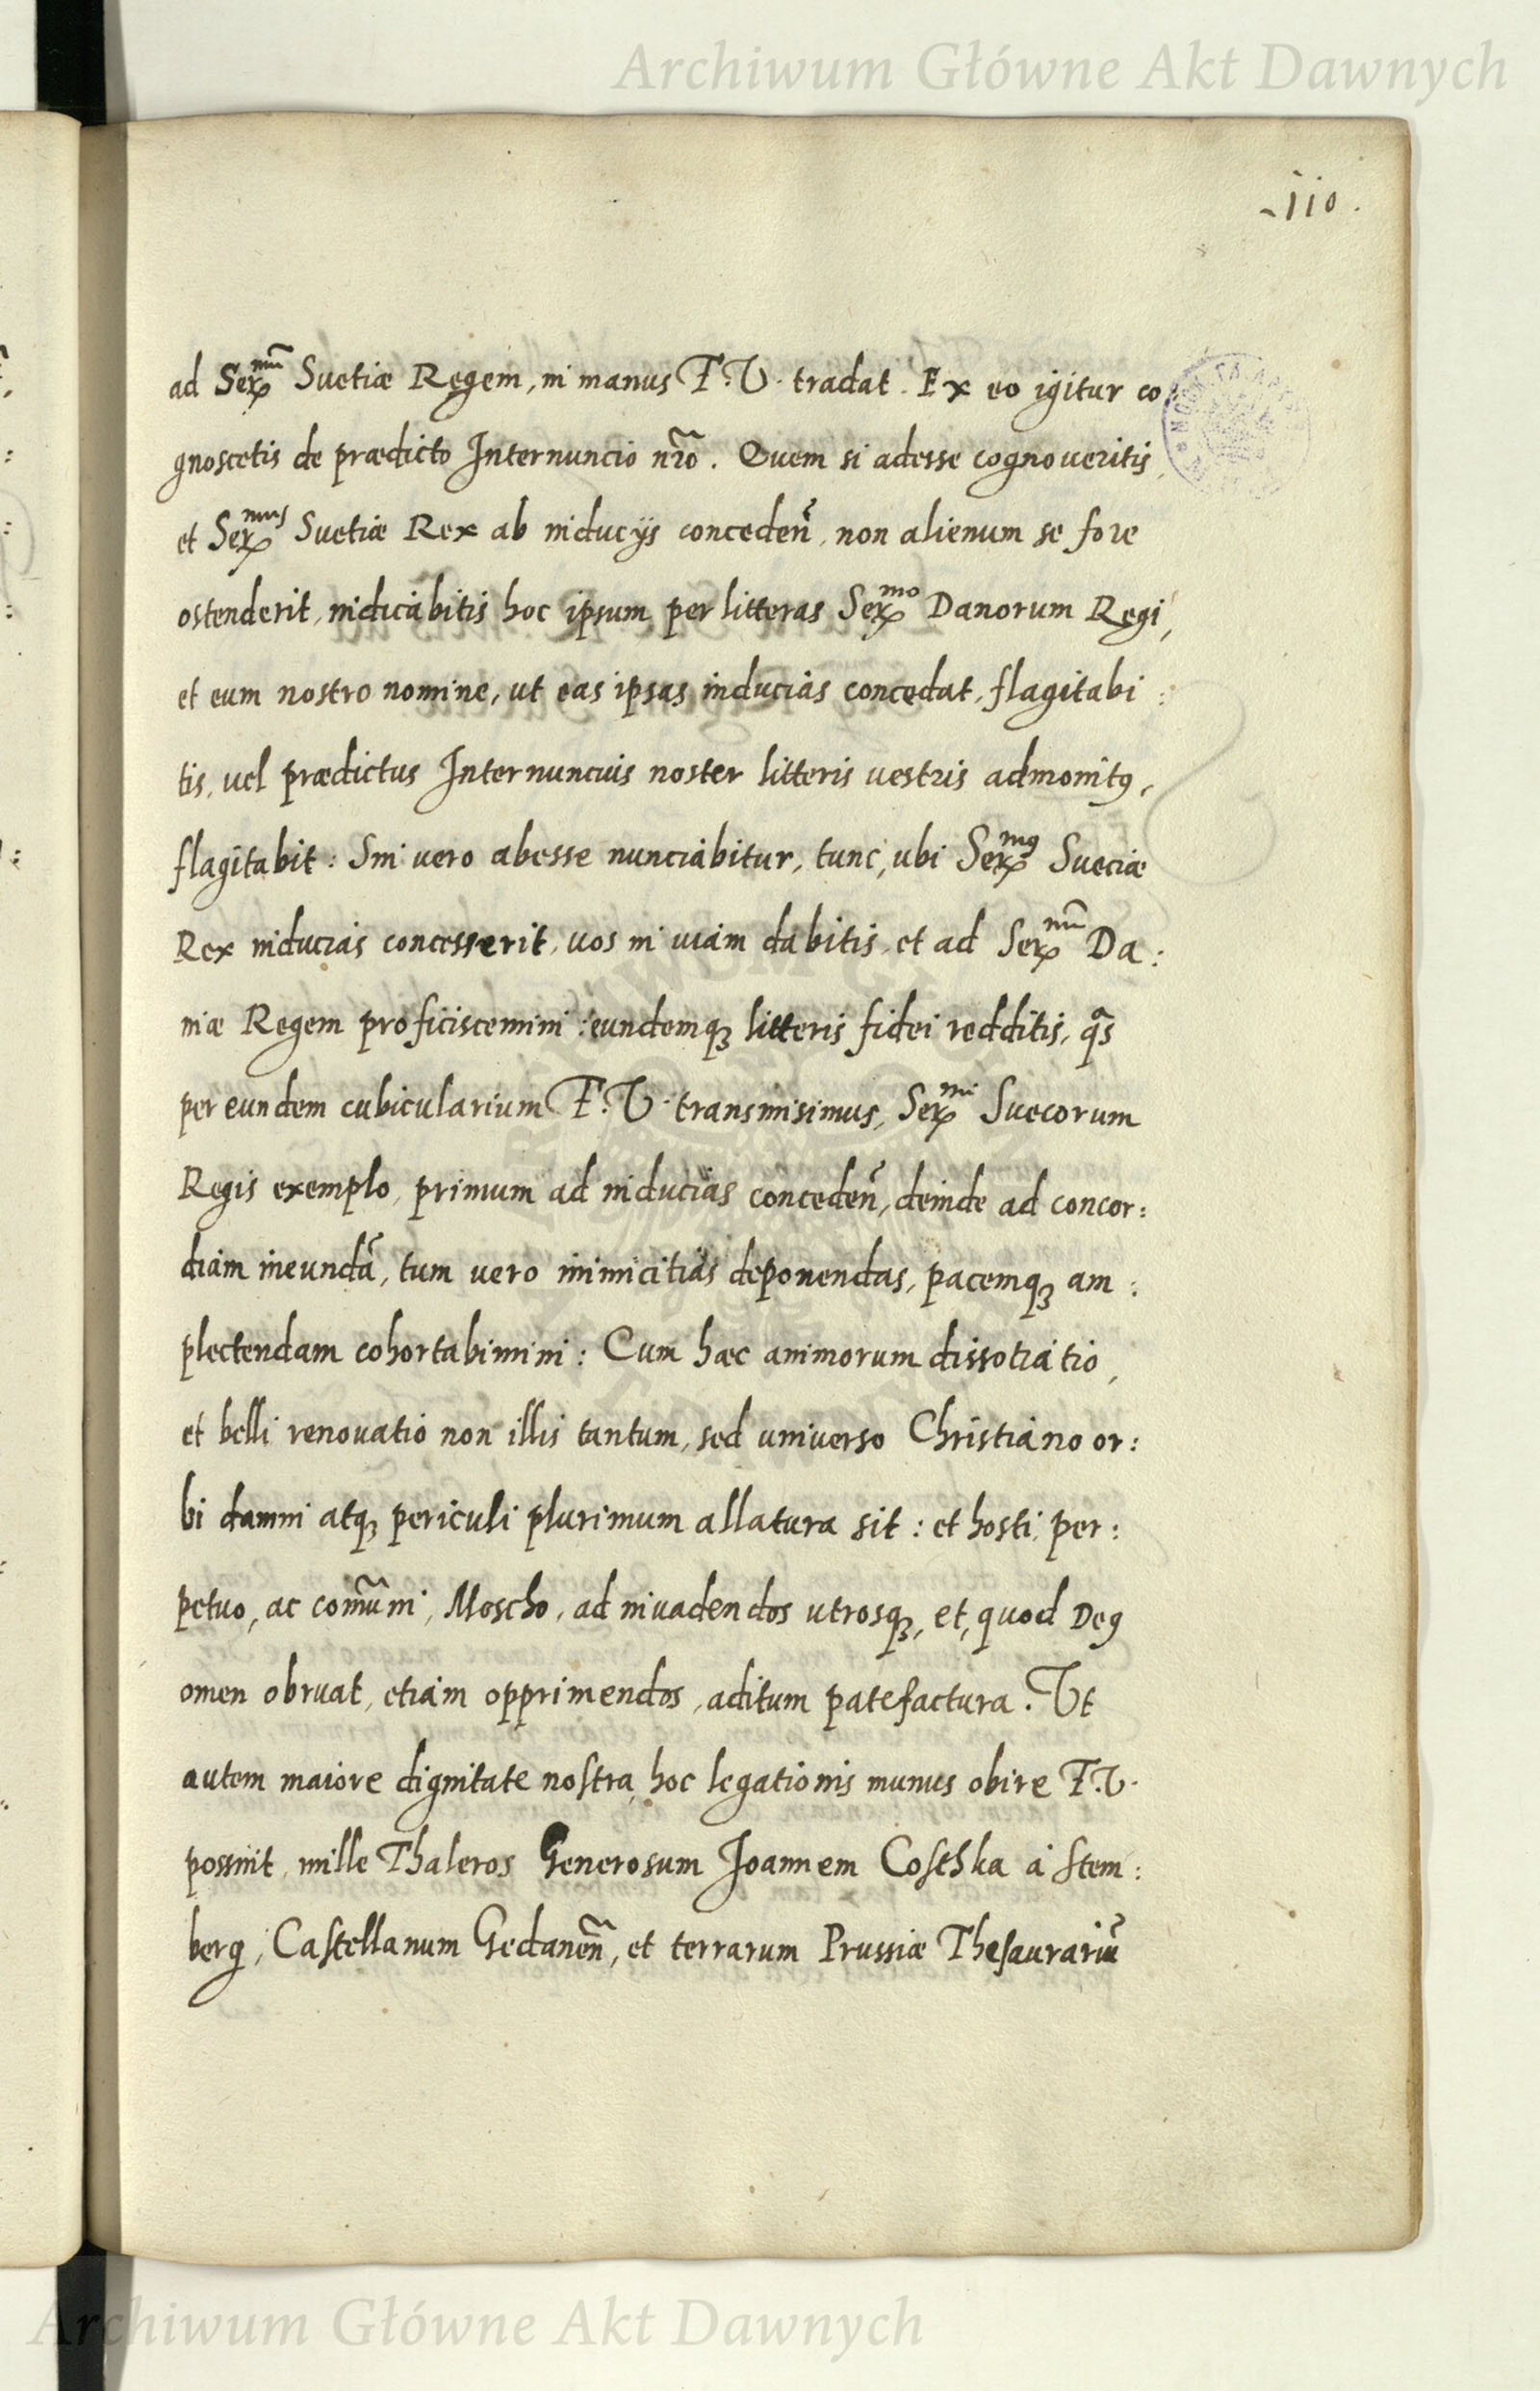 Archiwum Główne Akt Dawnych
110.
ad Ser.mũ Suetiæ Regem, in manus F.V. tradat. Ex eo igitur co:
gnoscetis de prædicto Internuncio nr̃o. Quem si adesse cognoveritis,
et Ser.mus Suetiæ Rex ab inducijs conceden̄, non alienum se fore
ostenderit, indicabitis hoc ipsum per litteras Ser.mo Danorum Regi,
et eum nostro nomine, ut eas ipsas inducias concedat, flagitabi:
tis, vel prædictus Internuncius noster litteris vestris admonitꝰ,
flagitabit: Sin vero abesse nunciabitur, tunc, ubi Ser.mꝰ Sueciæ
Rex inducias concesserit, vos in viam dabitis, et ad Ser.mũ Da:
niæ Regem proficiscemini: eundemqꝫ litteris fidei redditis, qãs
per eundem cubicularium F.V. transmisimus, Ser.mi Suecorum
Regis exemplo, primum ad inducias conceden̄, deinde ad concor:
diam ineundã, tum vero inimicitias deponendas, pacemqꝫ am:
plectendam cohortabimini: Cum hæc animorum dissotiatio,
et belli renovatio non illis tantum, sed universo Christiano or:
bi damni atqꝫ periculi plurimum allatura sit: et hosti per:
petuo, ac com̃uni, Moscho, ad invadendos utrosqꝫ, et, quod Deꝰ
omen obruat, etiam opprimendos, aditum patefactura. Ut
autem maiore dignitate nostra hoc legationis munus obire F.V.
possint, mille Thaleros Generosum Joannem Costhka à Stem:
berg, Castellanum Gedanen̄, et terrarum Prussiæ Thesaurariũ
Archiwum Główne Akt Dawnych